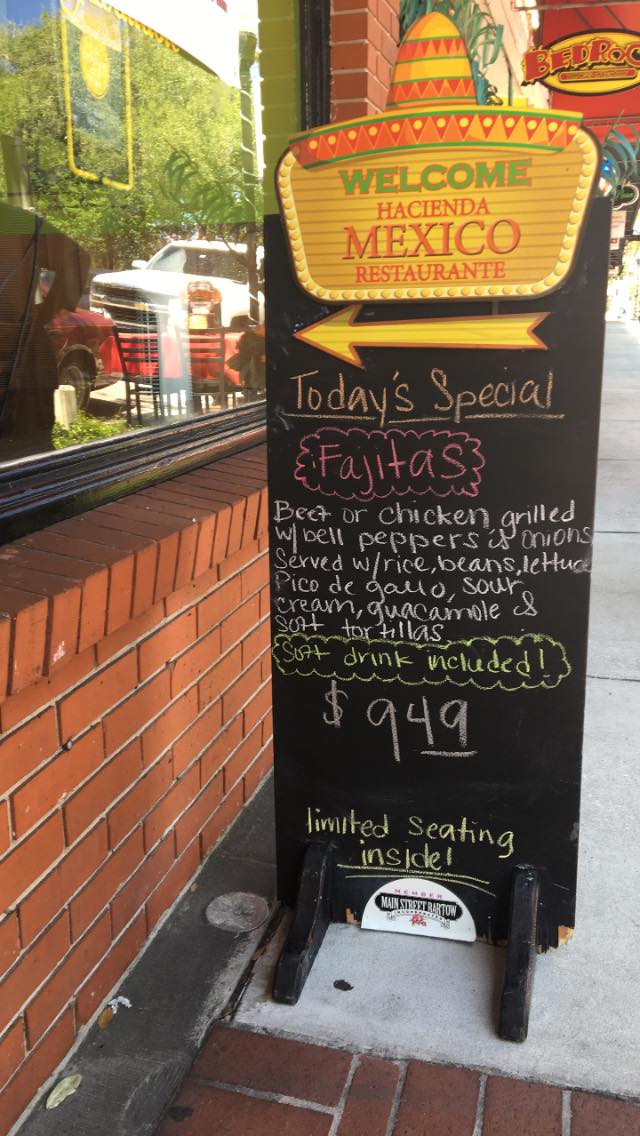 BEDROC
WELCOME
HACIENDA
MEXICO
RESTAURANTE
Today's Special
Fajitas
Beef or chicken grilled
w/bell peppers & onions
Served w/rice, beans, lettuce
Pico de gallo, sour
cream, guacamole &
soft tortillas
Soft drink included!
$ 949
limited Seating
inside!
MEMBER
MAIN STREET BARTOW
INCORPORATED